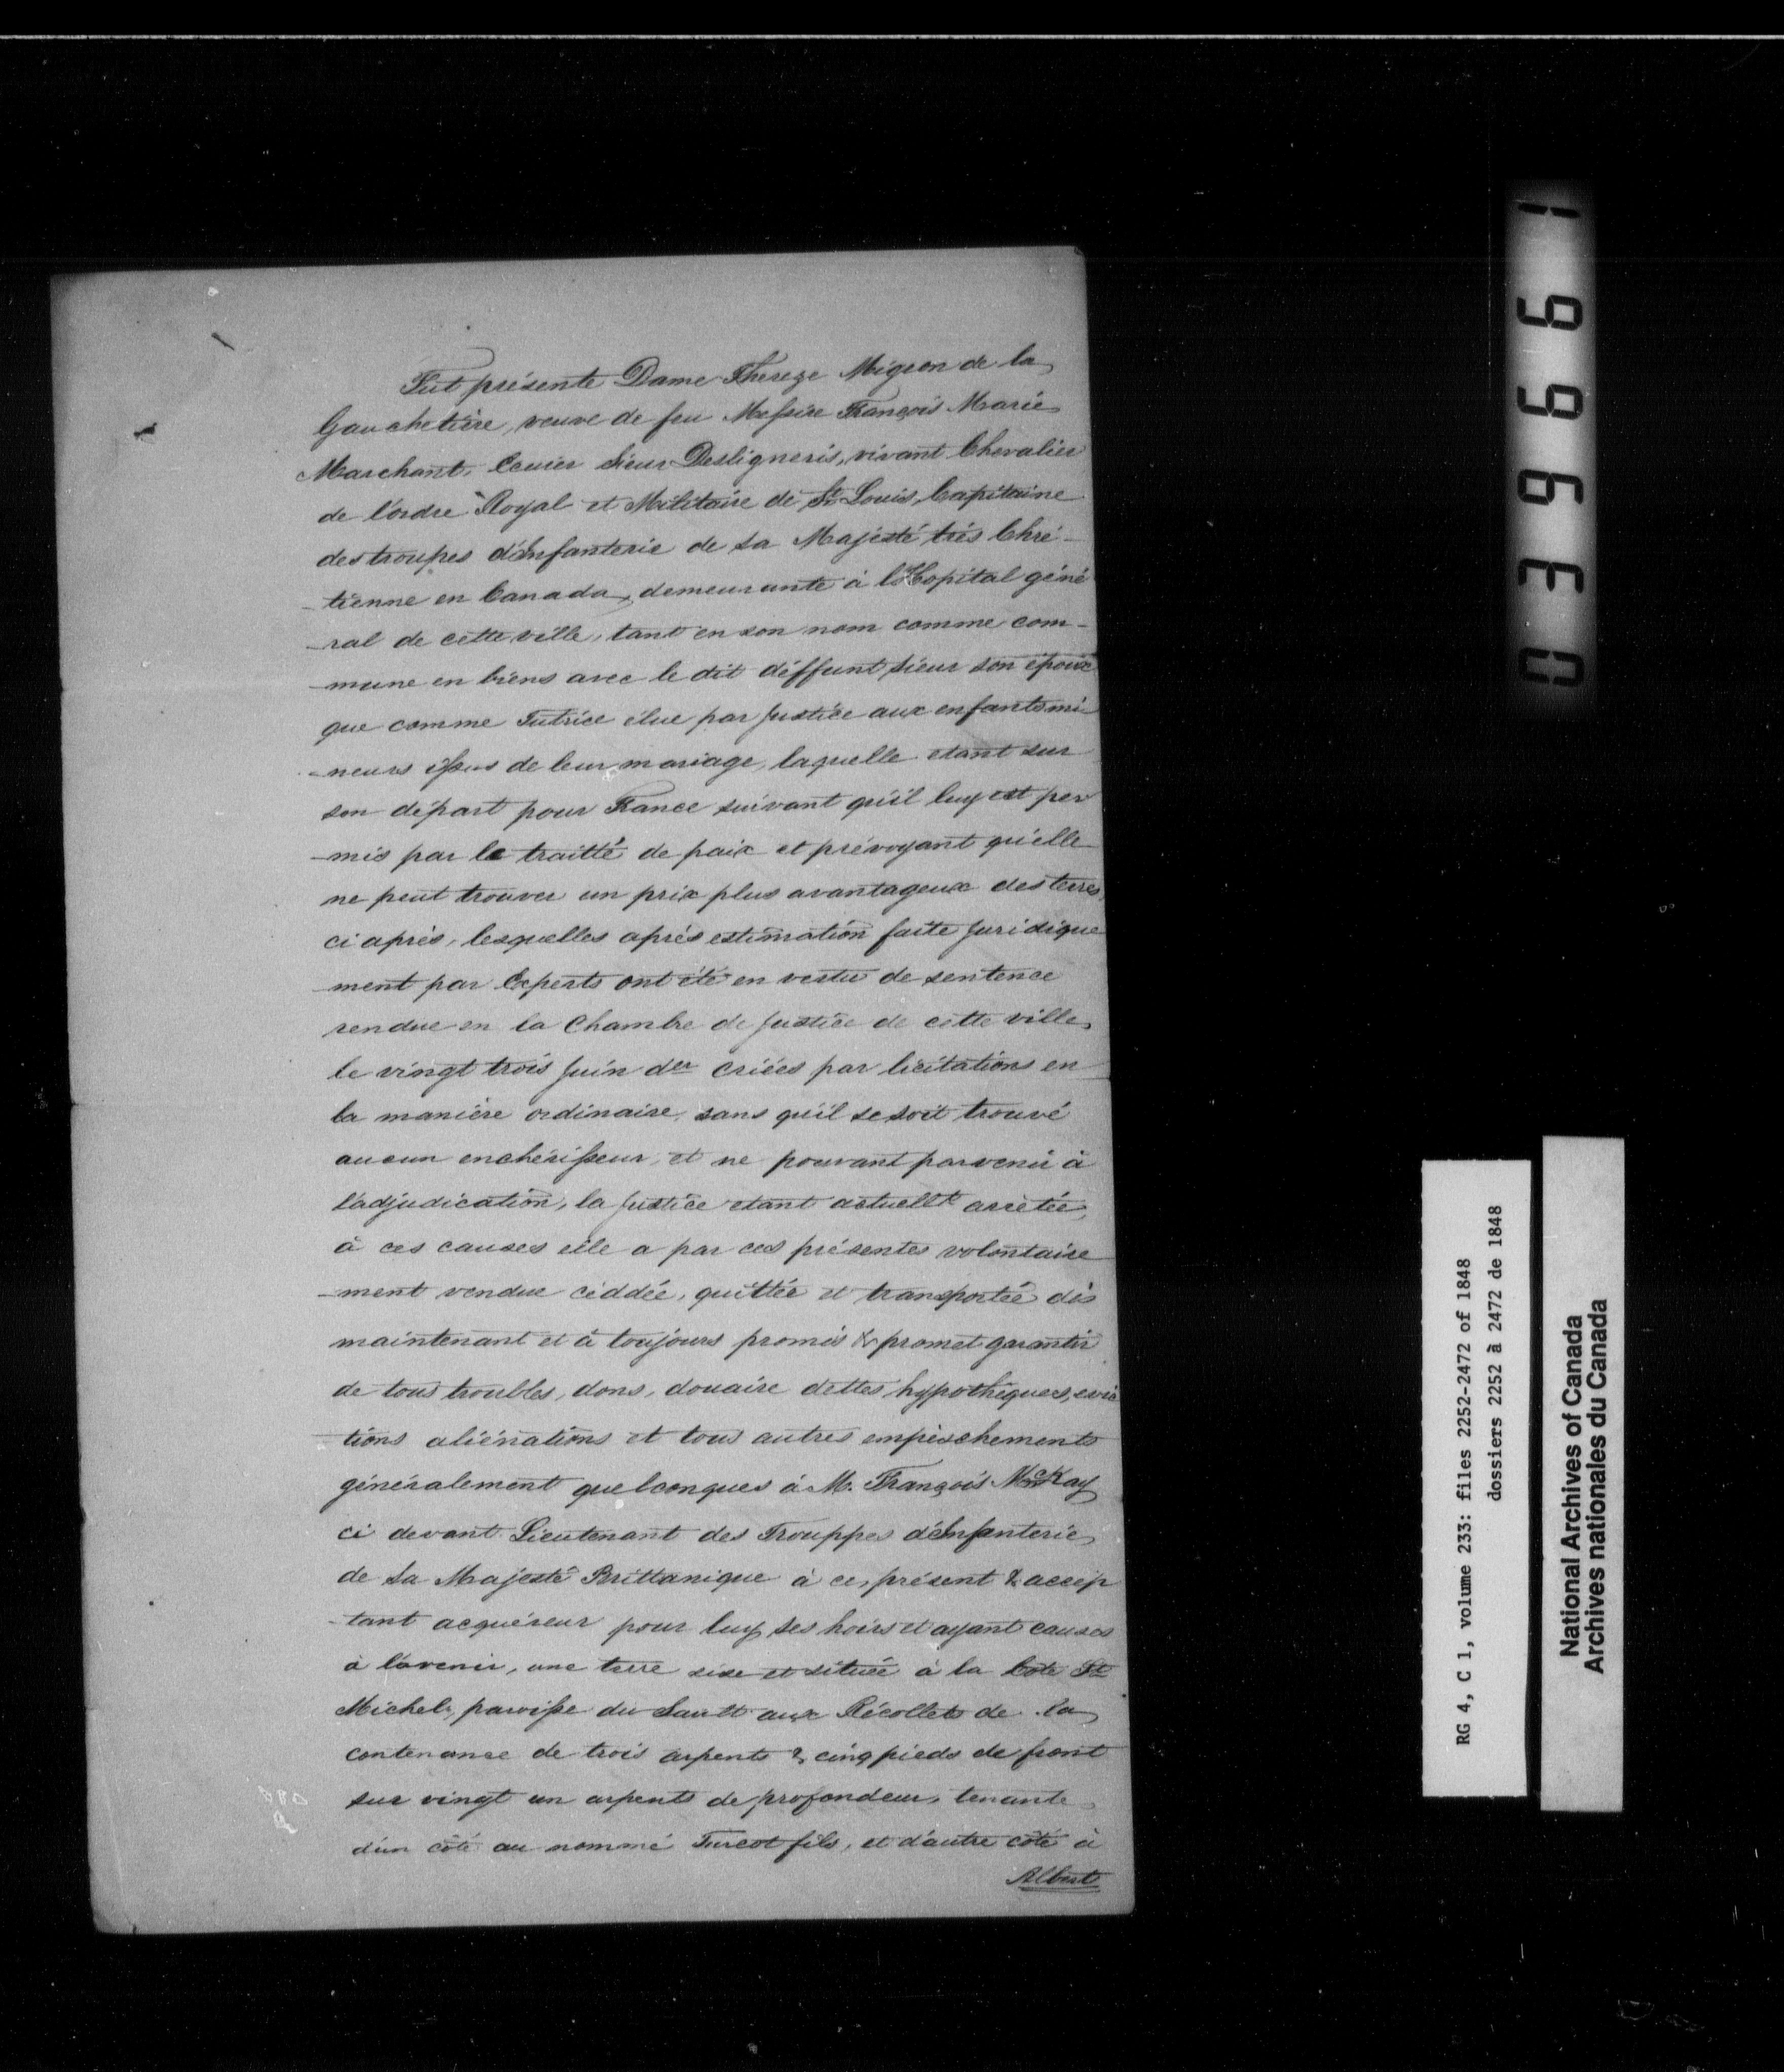 Fut présente Dame Thereze Migeon de la
Gauchetière, veuve de feu Messire François Marie
Marchant, Ecuier Sieur Desligneris, vivant Chevalier
de l'ordre Royal et Militaire de St Louis, Capitaine
des troupes d'Infanterie de Sa Majesté très Chré-
-tienne en Canada, demeurante à l'Hopital géné
-ral de cette ville, tant en son nom comme com-
-mune en biens avec le dit déffunt sieur son époux
que comme Tutrice élue par Justice aux enfants mi-
-neurs issus de leur mariage, laquelle etant sur
son départ pour France suivant qu'il luy est per
-mis par le traitté de paix et prévoyant qu'elle
ne peut trouver un prix plus avantageux des terres
ci après, lesquelles après estimation faite Juridique
-ment par Experts ont été en vertu de sentence
rendue en la Chambre de Justice de cette ville,
le vingt trois Juin der criées par licitations en
la manière ordinaire, sans qu'il se soit trouvé
aucun enchérisseur, et ne pouvant parvenir à
l'adjudication, la Justice etant actuellt arretée,
à ces causes elle a par ces présentes volontaire
-ment vendue céddée, quittée et transportée dès
maintenant et à toujours promis & promet garantir
de tous troubles, dons, douaire dettes hypothèques, evic
-tions aliénations et tous autres empèschements
généralement quelconques à M. François McKay
ci devant Lieutenant des Trouppes d'Infanterie
de Sa Majesté Brittanique à ce, présent & accep
-tant acquéreur pour luy ses hoirs et ayant causes
à l'avenir, une terre size et située à la Cote St
Michel, paroisse du Sault aux Récollets de la
contenance de trois arpents & cinq pieds de front
sur vingt un arpents de profondeur, tenante
d'un côté au nommé Turcot fils, et d'autre côté à
Albert
039661
RG 4, C 1, volume 233: files 2252-2472 of 1848
dossiers 2252 à 2472 de 1848
National Archives of Canada
Archives nationales du Canada